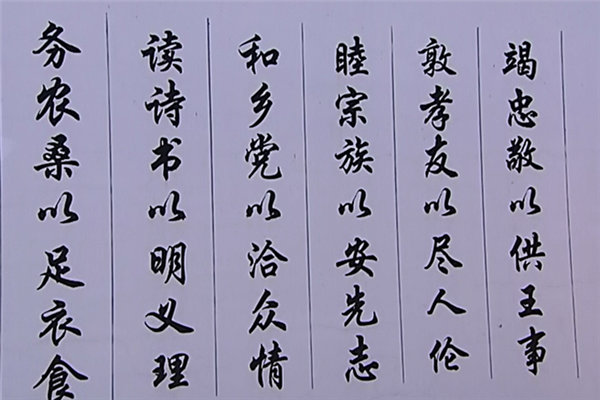 竭忠敬以供王事
敦孝友以尽人伦
睦宗族以安先志
和乡党以洽众情
读诗书以明义理
务农桑以足衣食